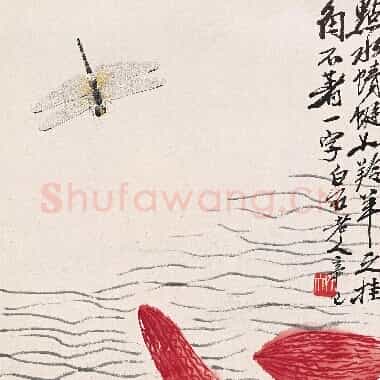 點水蜻蜓如羚羊之掛
角不著一字白石老人辛巳
Shufawang.cn